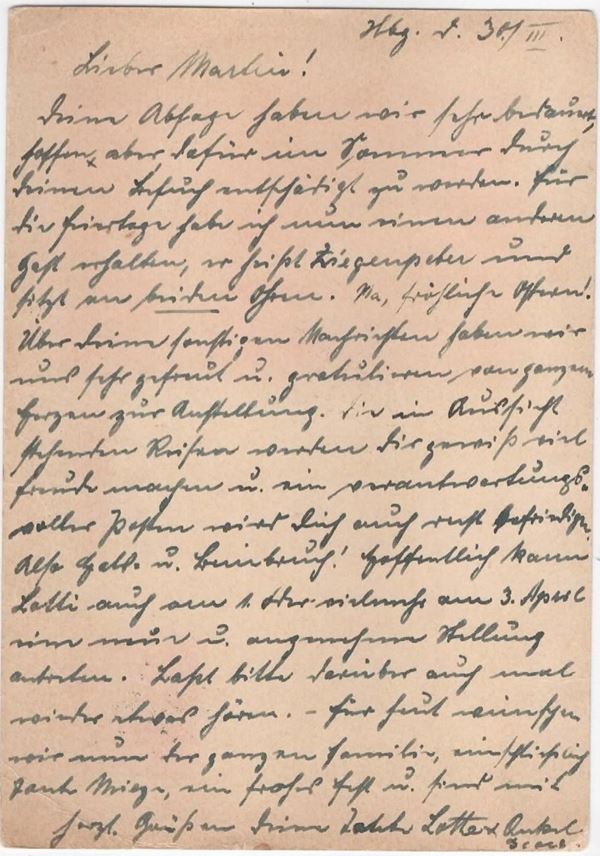 Hbg. d. 30./III.
Lieber Martin!
Deine Absage haben wir sehr bedauert,
hoffen, aber dafür im Sommer durch
deinen Besuch entschädigt zu werden. Für
die Feiertage habe ich nun einen anderen
Gast erhalten, er heißt Ziegenpeter und
sitzt an beiden Ohren. Na, fröhliche Ostern!
Über deine sonstigen Nachrichten haben wir
uns sehr gefreut u. gratulieren von ganzem
Herzen zur Anstellung. Die in Aussicht
stehenden Reisen werden dir gewiß viel
Freude machen u. ein verantwortungs-
voller Posten wird dich auch recht befriedigen.
Also Hals- u. Beinbruch! Hoffentlich kann
Lotti auch am 1. oder vielmehr am 3. April
eine neue u. angenehme Stellung
antreten. Laßt bitte darüber auch mal
wieder etwas hören. – Für heut wünschen
wir nun der ganzen Familie, einschließlich
Tante Mieze, ein frohes Fest u. sind mit
herzl. Grüßen deine Tante Lotte & Onkel